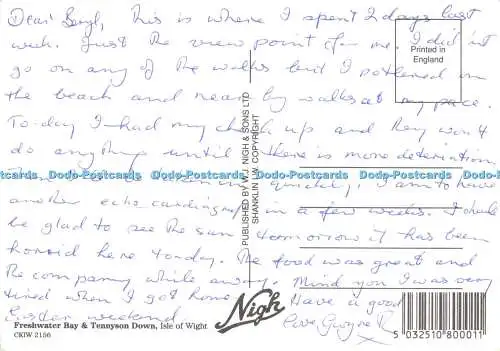 Dear Beryl, This is where I spent 2 days last
week. Just the view point for me. I did n't
go on any of the walks but I pottered on
the beach and near by walks at my pace.
To-day I had my check up and they won't
do anything until there is more deterioration
quickly, I am to have
another echo cardiograph in a few weeks. I shall
be glad to see the sun tomorrow it has been
horrid here today. The food was great and
the company while away. Mind you I was very
tired when I got home. Have a good
Easter weekend. Love Gwynne R
Printed in
England
PUBLISHED BY W.J. NIGH & SONS LTD
SHANKLIN I.W. COPYRIGHT
Dodo-Postcards Dodo-Postcards Dodo-Postcards Dodo-Postcards
Freshwater Bay & Tennyson Down, Isle of Wight
CKIW 2156
Nigh
5 032510 800011